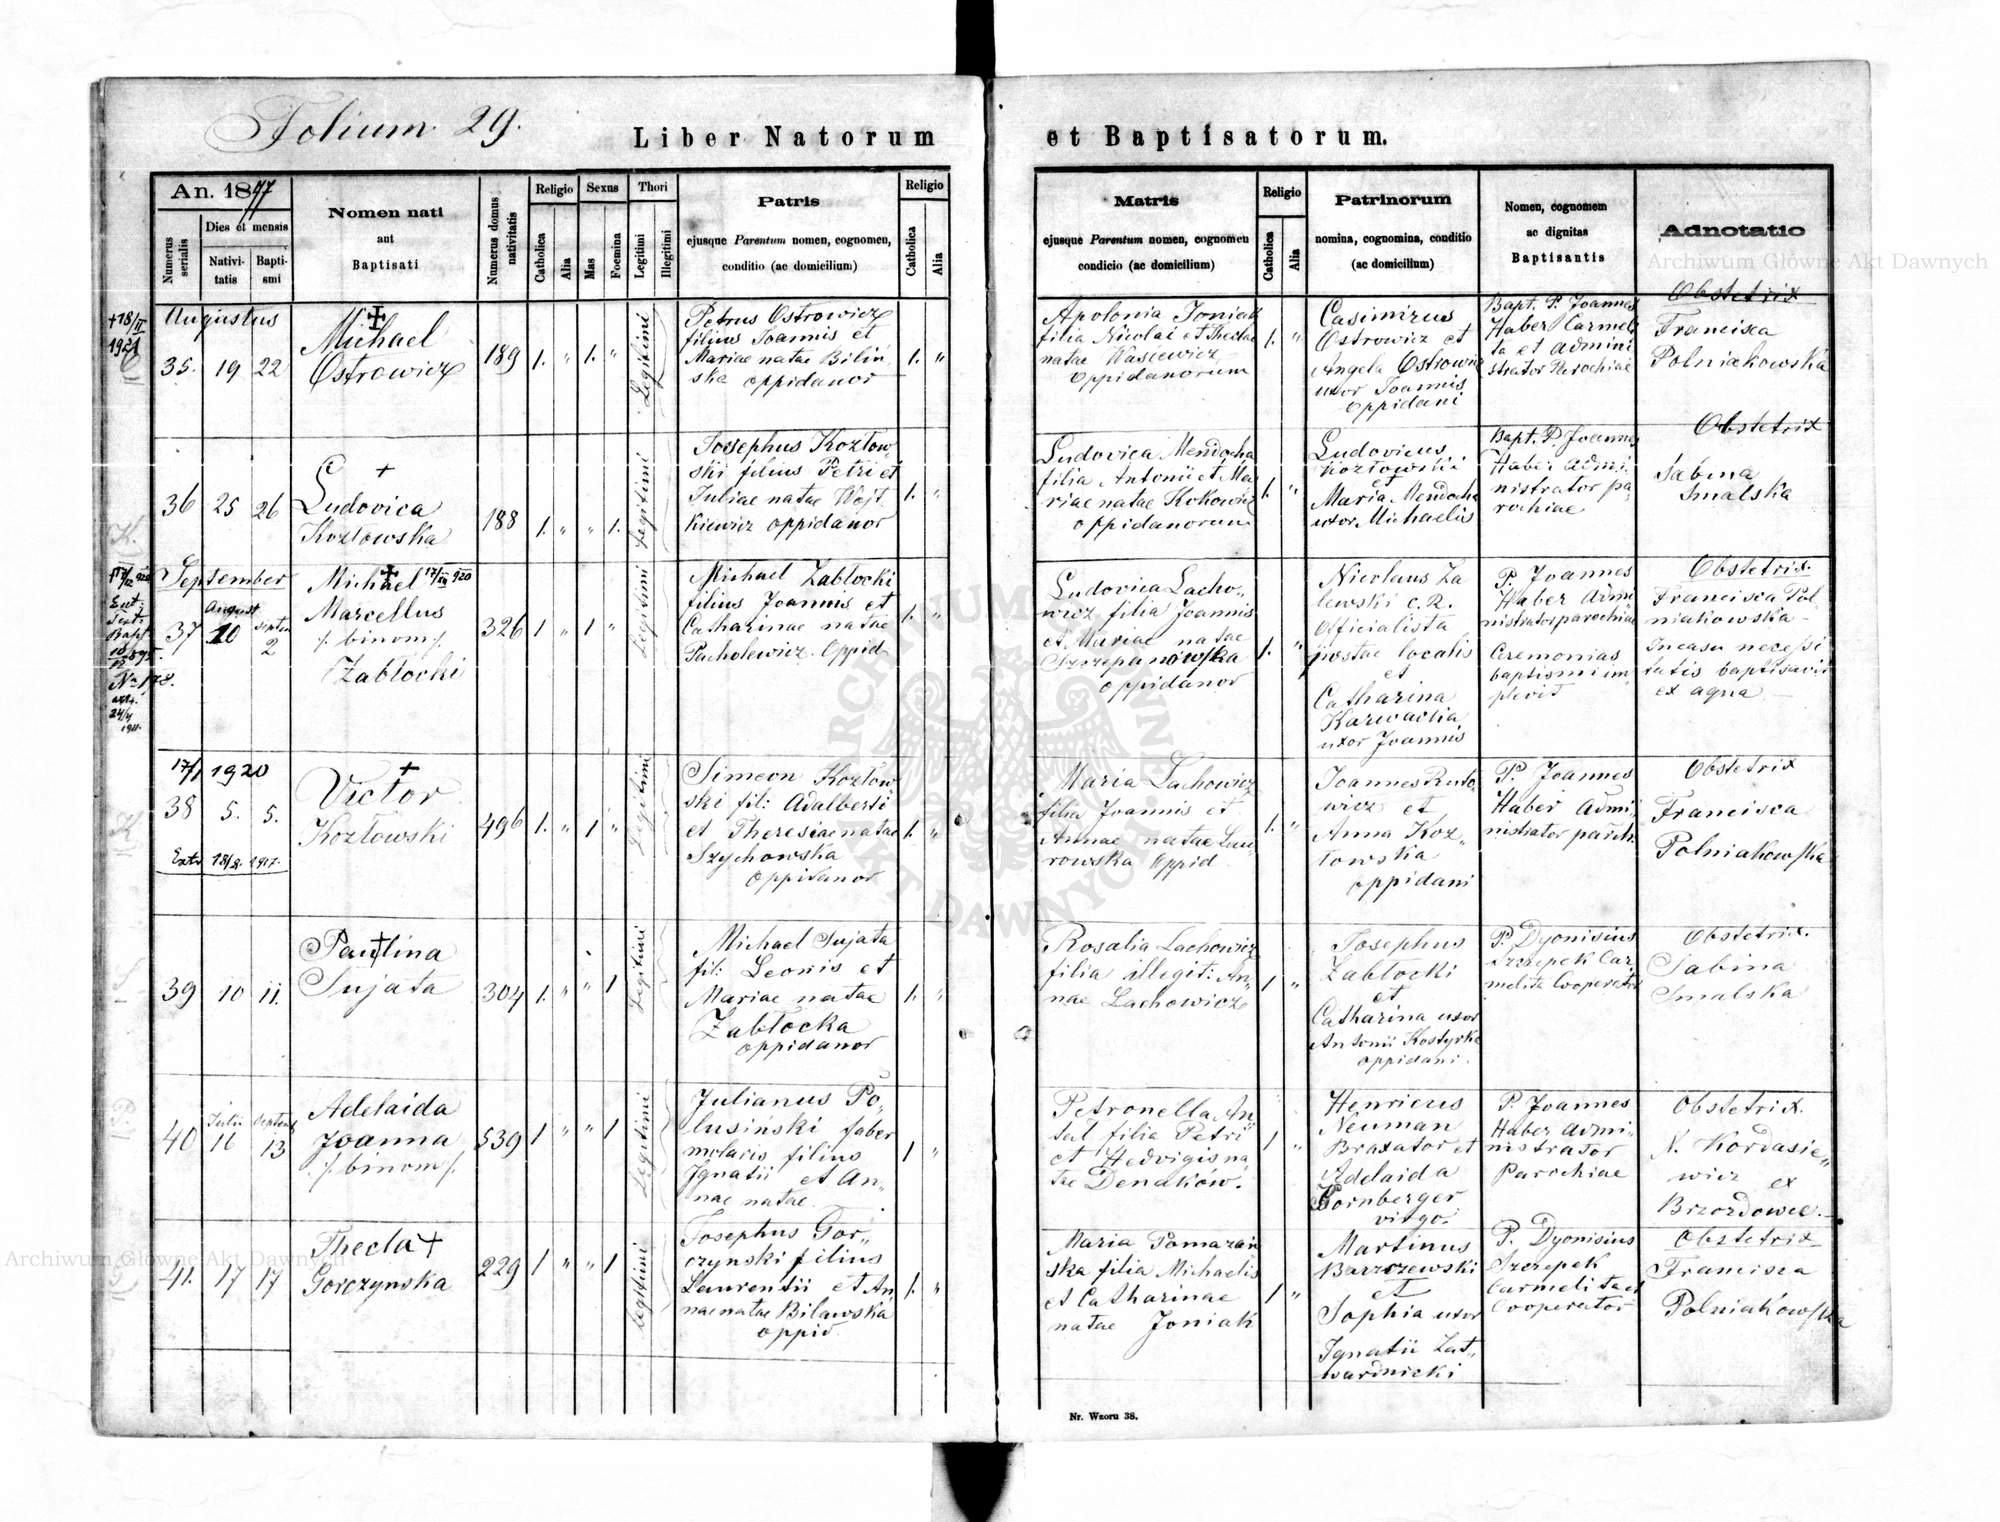 Folium 29.
Liber Natorum et Baptisatorum.
An. 1877
Numerus serialis
Dies et mensis
Nativitatis
Baptismi
Nomen nati
aut
Baptisati
Numerus domus nativitatis
Religio
Catholica
Alia
Sexus
Mas
Foemina
Thori
Legitimi
Illegitimi
Patris
ejusque Parentum nomen, cognomen,
conditio (ac domicilium)
Religio
Catholica
Alia
Matris
ejusque Parentum nomen, cognomen
condicio (ac domicilium)
Religio
Catholica
Alia
Patrinorum
nomina, cognomina, conditio
(ac domicilium)
Nomen, cognomem
ac dignitas
Baptisantis
Adnotatio
+18/II
1921
Augustus
35. 19 22
Michael
Ostrowicz
189 1. " 1. "
Legitimi
Petrus Ostrowicz
filius Joannis et
Mariae natae Biliń
ska oppidanor
1. "
Apolonia Joniak
filia Nicolai et Theclae
natae Wasiewicz
oppidanorum
1. "
Casimirus
Ostrowicz et
Angela Ostrowic
uxor Joannis
oppidani
Bapt. P. Joannes
Haber Carmeli
ta et Admini
strator Parochiae
Obstetrix
Francisca
Polniakowska
36 25 26
Ludovica
Kozłowska
188 1. " " 1.
Legitimi
Josephus Kozłow
ski filius Petri et
Juliae natae Wojt
kiewicz oppidanor
1. "
Ludovica Mendocha
filia Antonii et Ma
riae natae Kokowicz
oppidanorum
1. "
Ludovicus
Kozłowski
et
Maria Mendocha
uxor Michaelis
Bapt. P. Joannes
Haber Admi
nistrator pa
rochiae
Obstetrix
Sabina
Smalska
September
August
37 20 Septem 2
Michael 17/XII 920
Marcellus
/. binom /.
Zabłocki
326 1 " 1 "
Legitimi
Michael Zabłocki
filius Joannis et
Catharinae natae
Pacholewicz Oppid
1. "
Ludovica Lacho"
wicz filia Joannis
et Mariae natae
Szczepanowska
oppidanor
1. "
Nicolaus Za
lewski c. R.
Officialista
postae localis
et
Catharina
Karwacka
uxor Joannis
P. Joannes
Haber Admi
nistrator parochiae
Ceremonias
baptismi im
plevit
Obstetrix.
Francisca Pol
niakowska
In casu necessi
tatis baptisavit
ex aqua
17/1 1920
38 5. 5.
Extr 18/8. 1917.
Victor
Kozłowski
496 1. " 1 "
Legitimi
Simeon Kozłow
ski fil: Adalberti
et Theresiae natae
Szychowska
oppidanor
1. "
Maria Lachowicz
filia Joannis et
Annae natae Lau
rowska Oppid
1. "
Joannes Rudo
wicz et
Anna Koz"
łowska
oppidani
P. Joannes
Haber Admi
nistrator paroch.
Obstetrix
Francisca
Polniakowska
39 10 11.
Paulina
Sujata
304 1. " " 1
Legitimi
Michael Sujata
fil: Leonis et
Mariae natae
Zabłocka
oppidanor
1. "
Rosalia Lachowicz
filia illegit: An"
nae Lachowicz
1 "
Josephus
Zabłocki
et
Catharina uxor
Antonii Kostyrka
oppidani.
P. Dyonisius
Szczepek Car
melita Cooperator
Obstetrix.
Sabina
Smalska
Julii Septemb
40 16 13
Adelaida
Joanna
/. binom /.
539 1 " " 1
Legitimi
Julianus Po"
lusiński faber
molaris filius
Ignatii et An"
nae natae
1 "
Petronella An"
tal filia Petri
et Hedvigis na
tae Denaków.
1 "
Henricus
Neuman
Braxator et
Adelaida
Gornberger
virgo.
P. Joannes
Haber Admi"
nistrator
Parochiae
Obstetrix.
N. Kordasie"
wicz ex
Brzozdowce.
41. 17 17
Thecla
Gorczynska
229 1 " " 1
Legitimi
Josephus Gor"
czynski filius
Laurentii et An
nae natae Bilawska
oppid.
1. "
Maria Pomazań
ska filia Michaelis
et Catharinae
natae Joniak
1 "
Martinus
Barzczewski
et
Sophia uxor
Ignatii Zat"
wardnicki
P. Dyonisius
Szczepek
Carmelita et
Cooperator
Obstetrix
Francisca
Polniakowska
Nr. Wzoru 38.
Archiwum Główne Akt Dawnych
Archiwum Główne Akt Dawnych
ARCHIWUM GŁÓWNE AKT DAWNYCH